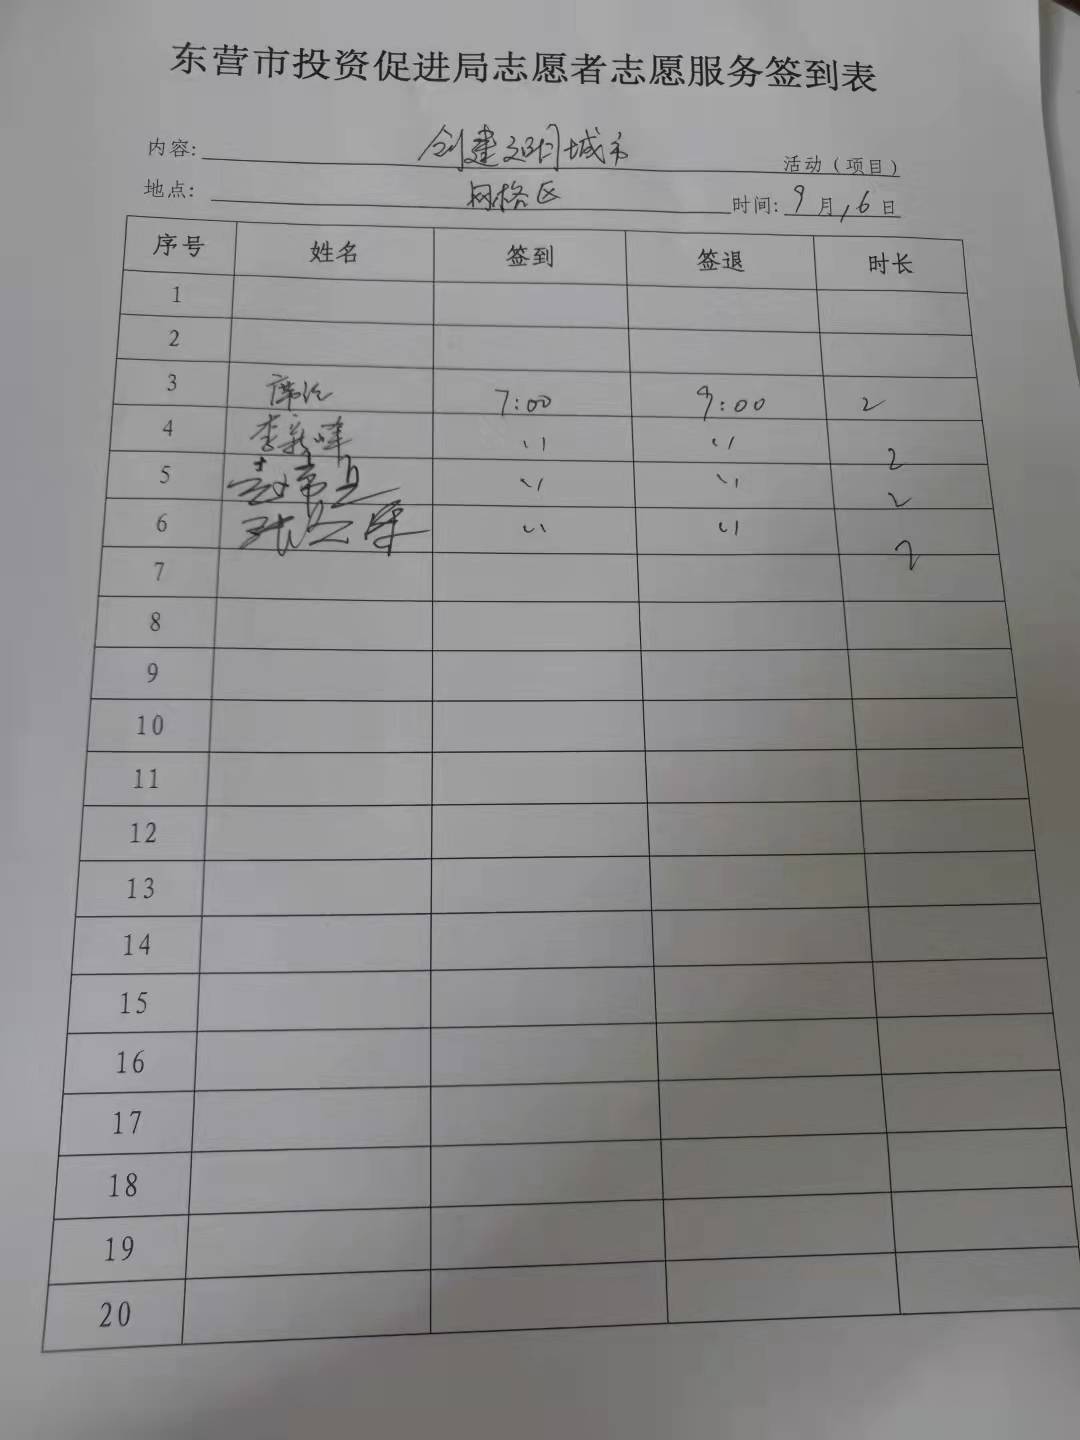 东营市投资促进局志愿者志愿服务签到表
内容: 创建文明城市 活动（项目）
地点: 网格区 时间: 9月16日
序号 姓名 签到 签退 时长
1
2
3 7:00 9:00 2
4 李新峰 〃 〃 2
5 〃 〃 2
6 〃 〃 2
7
8
9
10
11
12
13
14
15
16
17
18
19
20